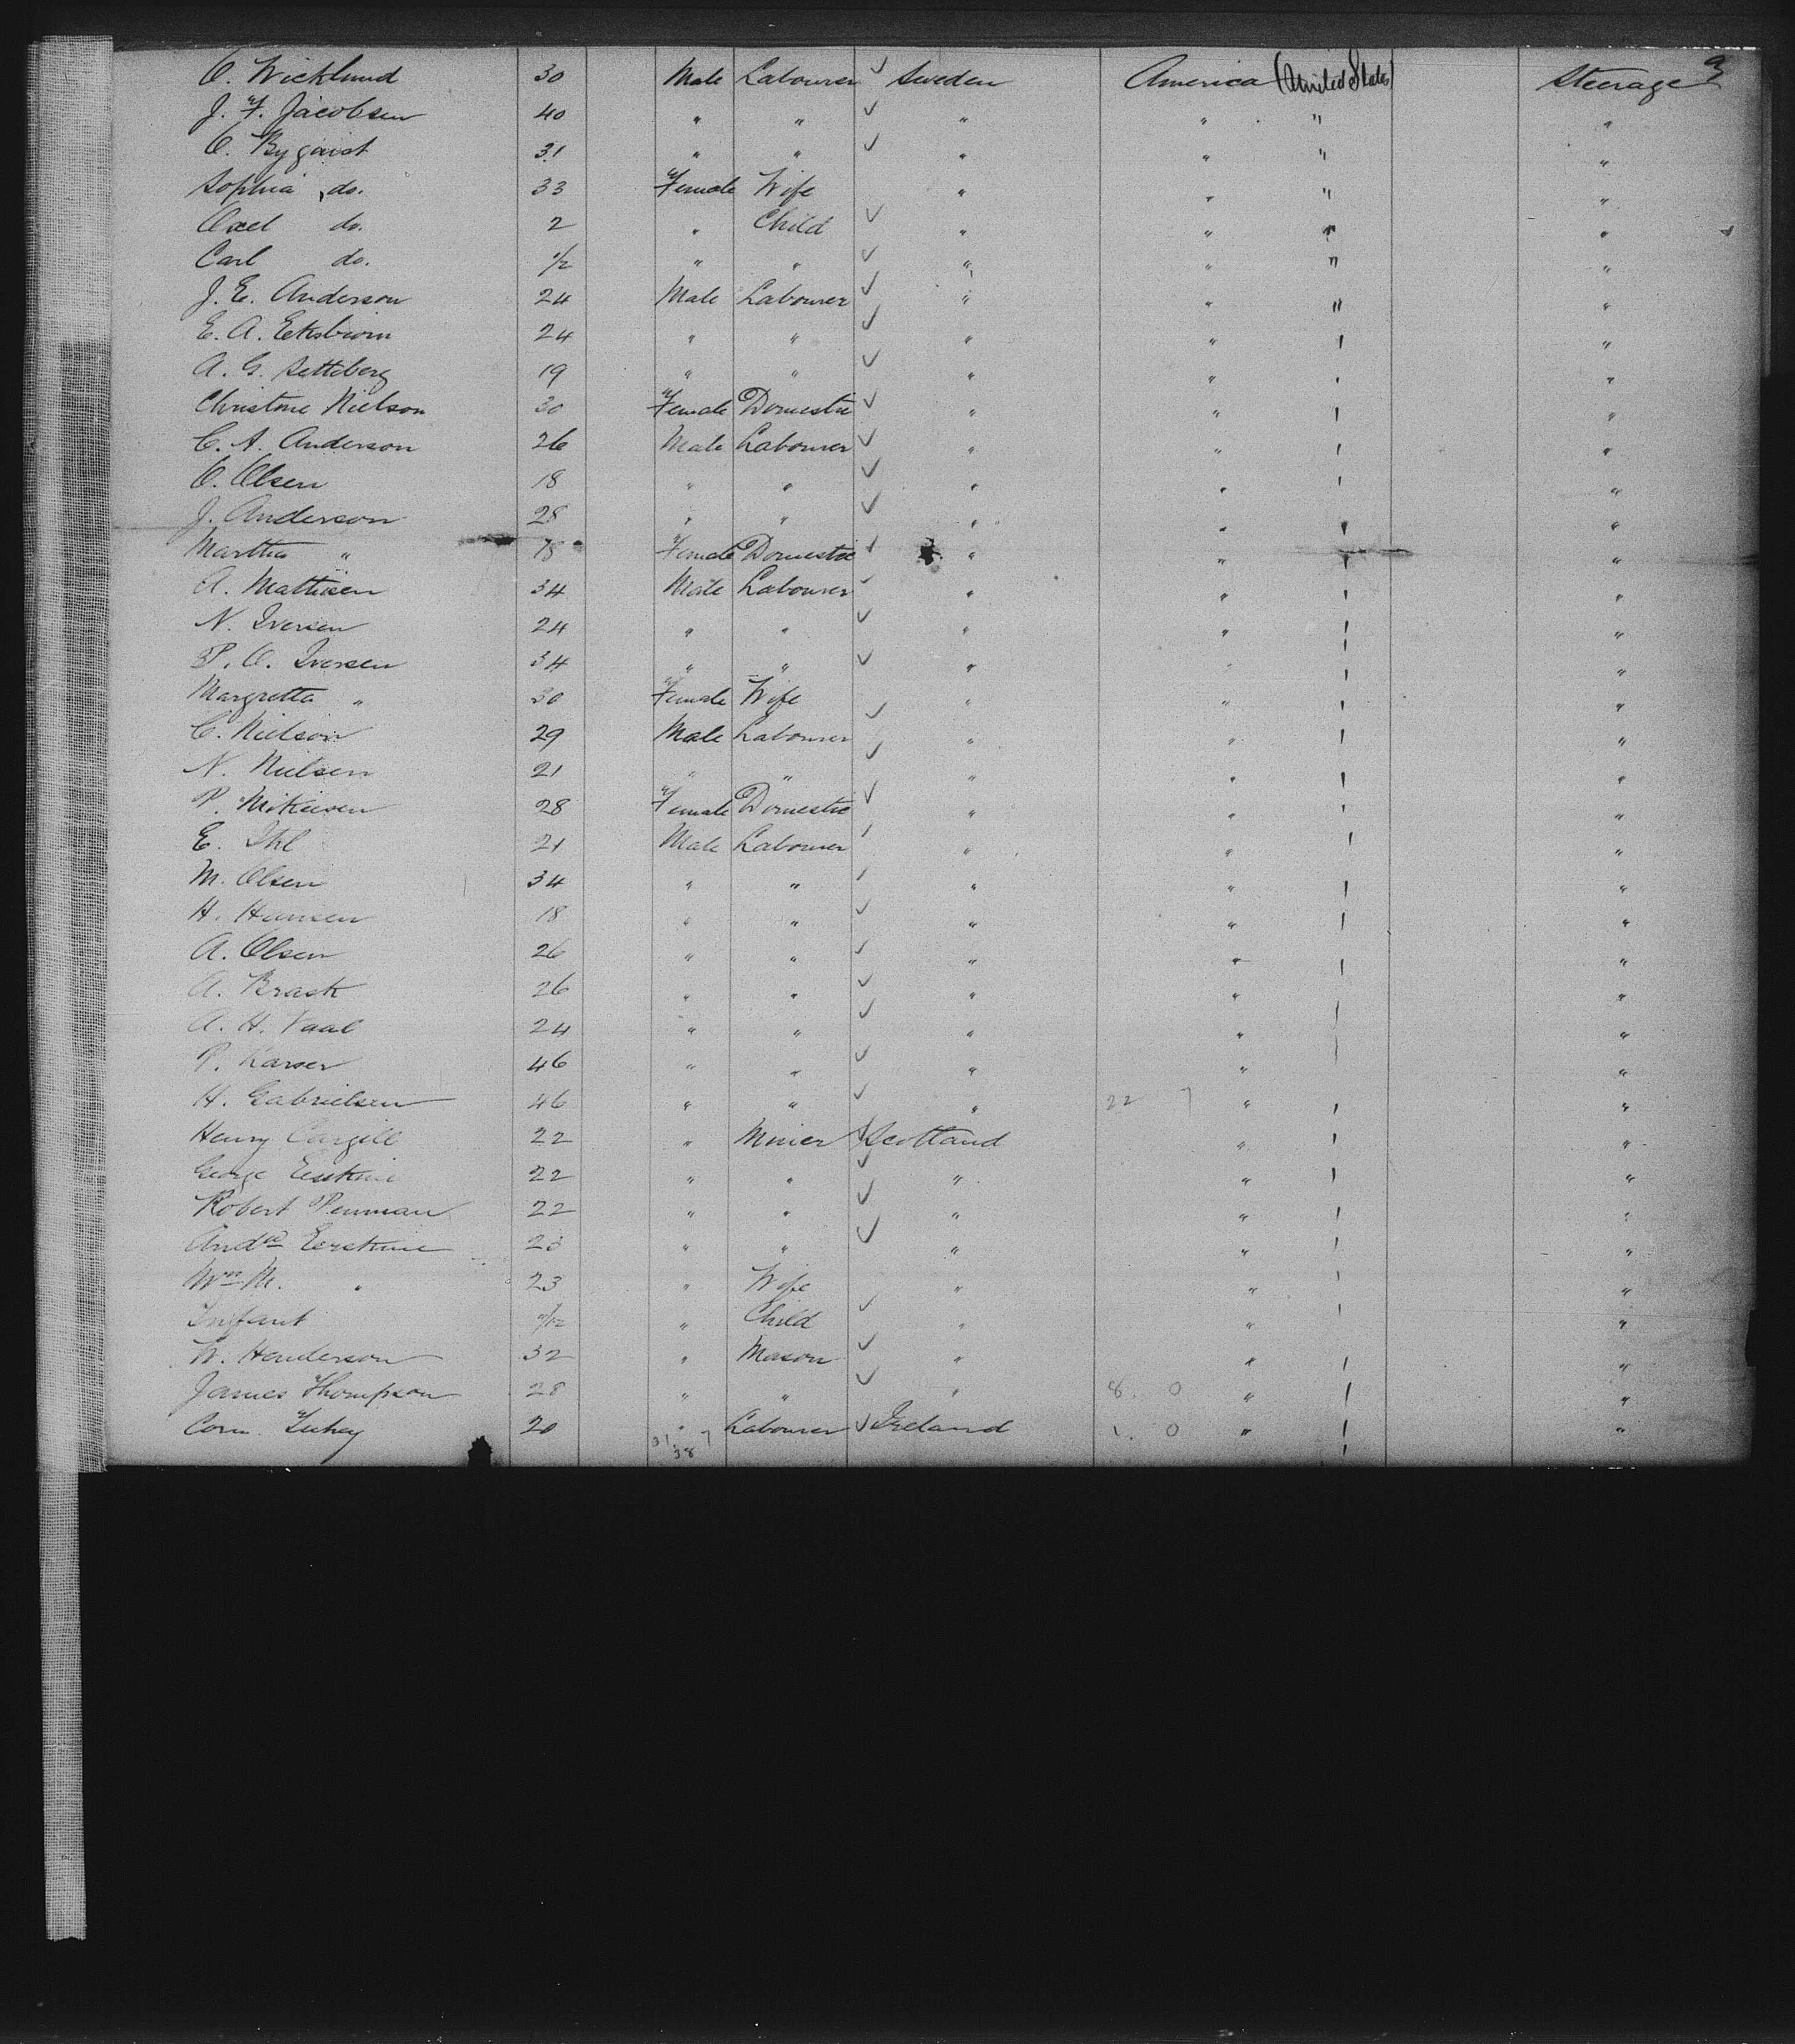 9
O. Wicklund 30 Male Labourer ✓ Sweden America (United States) Steerage
J. F. Jacobsen 40 " " ✓ " " " "
O. Byquist 31 " " ✓ " " " "
Sophia do. 33 Female Wife " " " "
Axel do. 2 " Child ✓ " " " "
Carl do. 1/2 " " ✓ " " " "
J. E. Anderson 24 Male Labourer ✓ " " " "
E. A. Eksbiorn 24 " " ✓ " " "
A. G. Setteberg 19 " " ✓ " " "
Christine Nielson 30 Female Domestic ✓ " " "
C. A. Anderson 26 Male Labourer ✓ " " "
O. Olsen 18 " " ✓ " " "
J. Anderson 28 " " ✓ " " "
Martha " 18 Female Domestic ✓ " " "
A. Mathisen 34 Male Labourer ✓ " " "
N. Iversen 24 " " ✓ " " "
P. O. Iversen 34 " " ✓ " " "
Margretta " 30 Female Wife " " "
C. Nielson 29 Male Labourer ✓ " " "
N. Nielsen 21 " " ✓ " " "
P. Mikeisen 28 Female Domestic ✓ " " "
E. Ihl 21 Male Labourer ✓ " " "
M. Olsen 34 " " ✓ " " "
H. Hansen 18 " " ✓ " " "
A. Olsen 26 " " ✓ " " "
A. Brask 26 " " ✓ " " "
A. H. Vaal 24 " " ✓ " " "
P. Karser 46 " " ✓ " " "
H. Gabrielsen 46 " " ✓ " 22 7 " "
Henry Cargill 22 " Miner ✓ Scotland " "
George Erskine 22 " " ✓ " " "
Robert Penman 22 " " ✓ " " "
Andw Erskine 23 " " ✓ " " "
Wm M. " 23 " Wife " " "
Infant " Child ✓ " " "
W. Henderson 32 " Mason ✓ " " "
James Thompson 28 " " ✓ " 8. 0 " "
Corn. 20 " Labourer ✓ Ireland 1. 0 " "
31. 7
38